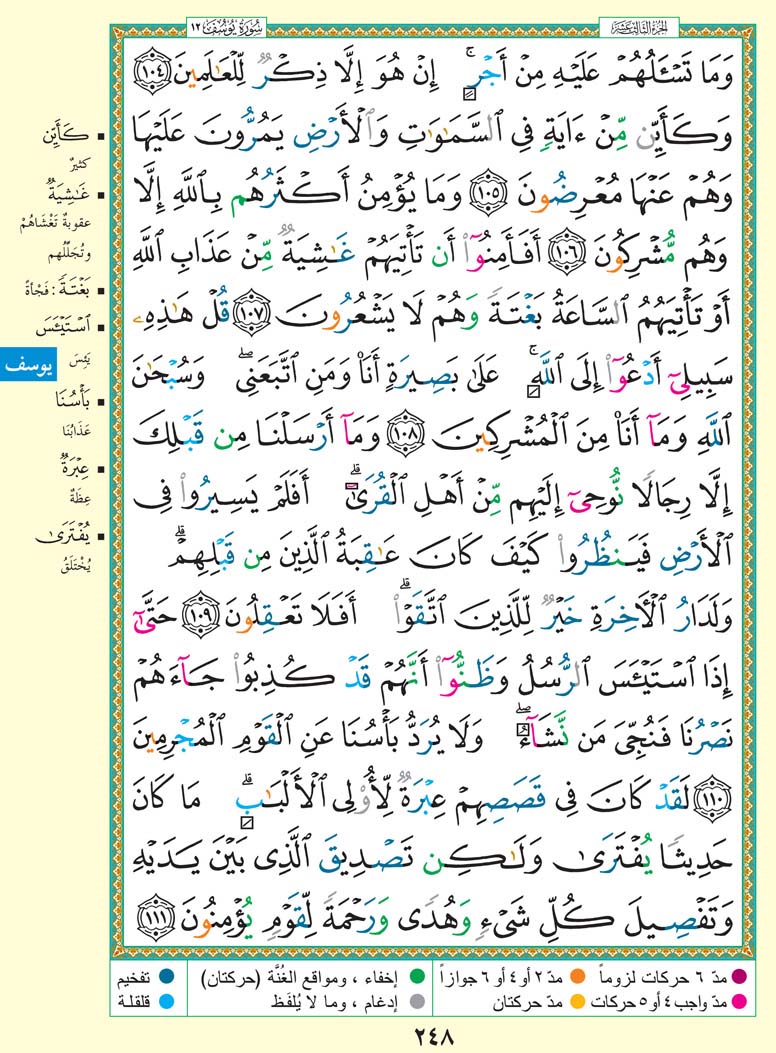 سُورَةُ يُوسُفَ ١٢
الجزء الثالث عشر
وَمَا تَسْـَٔلُهُمْ عَلَيْهِ مِنْ أَجْرٍ ۚ إِنْ هُوَ إِلَّا ذِكْرٌ لِّلْعَٰلَمِينَ ١٠٤
وَكَأَيِّن مِّنْ ءَايَةٍ فِى السَّمَٰوَٰتِ وَالْأَرْضِ يَمُرُّونَ عَلَيْهَا
وَهُمْ عَنْهَا مُعْرِضُونَ ١٠٥ وَمَا يُؤْمِنُ أَكْثَرُهُم بِاللَّهِ إِلَّا
وَهُم مُّشْرِكُونَ ١٠٦ أَفَأَمِنُوٓا۟ أَن تَأْتِيَهُمْ غَٰشِيَةٌ مِّنْ عَذَابِ اللَّهِ
أَوْ تَأْتِيَهُمُ السَّاعَةُ بَغْتَةً وَهُمْ لَا يَشْعُرُونَ ١٠٧ قُلْ هَٰذِهِۦ
سَبِيلِىٓ أَدْعُوٓا۟ إِلَى اللَّهِ ۚ عَلَىٰ بَصِيرَةٍ أَنَا۠ وَمَنِ اتَّبَعَنِى ۖ وَسُبْحَٰنَ
اللَّهِ وَمَآ أَنَا۠ مِنَ الْمُشْرِكِينَ ١٠٨ وَمَآ أَرْسَلْنَا مِن قَبْلِكَ
إِلَّا رِجَالًا نُّوحِىٓ إِلَيْهِم مِّنْ أَهْلِ الْقُرَىٰٓ ۗ أَفَلَمْ يَسِيرُوا۟ فِى
الْأَرْضِ فَيَنظُرُوا۟ كَيْفَ كَانَ عَٰقِبَةُ الَّذِينَ مِن قَبْلِهِمْ ۗ
وَلَدَارُ الْءَاخِرَةِ خَيْرٌ لِّلَّذِينَ اتَّقَوْا۟ ۗ أَفَلَا تَعْقِلُونَ ١٠٩ حَتَّىٰٓ
إِذَا اسْتَيْـَٔسَ الرُّسُلُ وَظَنُّوٓا۟ أَنَّهُمْ قَدْ كُذِبُوا۟ جَآءَهُمْ
نَصْرُنَا فَنُجِّىَ مَن نَّشَآءُ ۖ وَلَا يُرَدُّ بَأْسُنَا عَنِ الْقَوْمِ الْمُجْرِمِينَ
١١٠ لَقَدْ كَانَ فِى قَصَصِهِمْ عِبْرَةٌ لِّأُو۟لِى الْأَلْبَٰبِ ۗ مَا كَانَ
حَدِيثًا يُفْتَرَىٰ وَلَٰكِن تَصْدِيقَ الَّذِى بَيْنَ يَدَيْهِ
وَتَفْصِيلَ كُلِّ شَىْءٍ وَهُدًى وَرَحْمَةً لِّقَوْمٍ يُؤْمِنُونَ ١١١
كَأَيِّن
كثيرٌ
غَٰشِيَةٌ
عقوبةٌ تَغْشَاهُمْ
وتُجَلِّلُهم
بَغْتَةً : فَجْأةً
اسْتَيْـَٔسَ
يَئِسَ
يوسف
بَأْسُنَا
عَذَابُنَا
عِبْرَةٌ
عِظَةٌ
يُفْتَرَىٰ
يُخْتَلَقُ
مدّ ٦ حركات لزوماً
مدّ ٢ أو ٤ أو ٦ جوازاً
إخفاء ، ومواقع الغُنَّة (حركتان)
تفخيم
مدّ واجب ٤ أو ٥ حركات
مدّ حركتان
إدغام ، وما لا يُلفَظ
قلقلة
٢٤٨